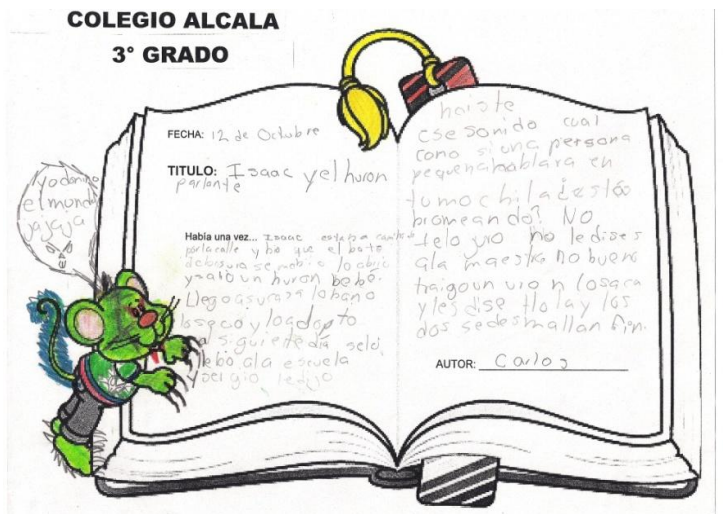 COLEGIO ALCALA
3° GRADO
FECHA: 12 de Octubre
TITULO: Isaac y el huron
parlante
yo domino
el mundo
jajaja
Había una vez... Isaac estaba
por la calle y bio que el bote
de basura se mobia lo abrio
y salio un huron bebé.
Llego a su casa lo baño
lo seco y lo adopto
al siguiente dia se lo
llebo ala escuela
y sergio le dijo
haiste
ese sonido cual
como si una persona
pequeña hablara en
tu mochila ¿estás
bromeando? NO
telo juro no le dises
ala maestra no bueno
traigo un uron lo saca
y les dise Hola y los
dos se desmallan fin.
AUTOR: Carlos